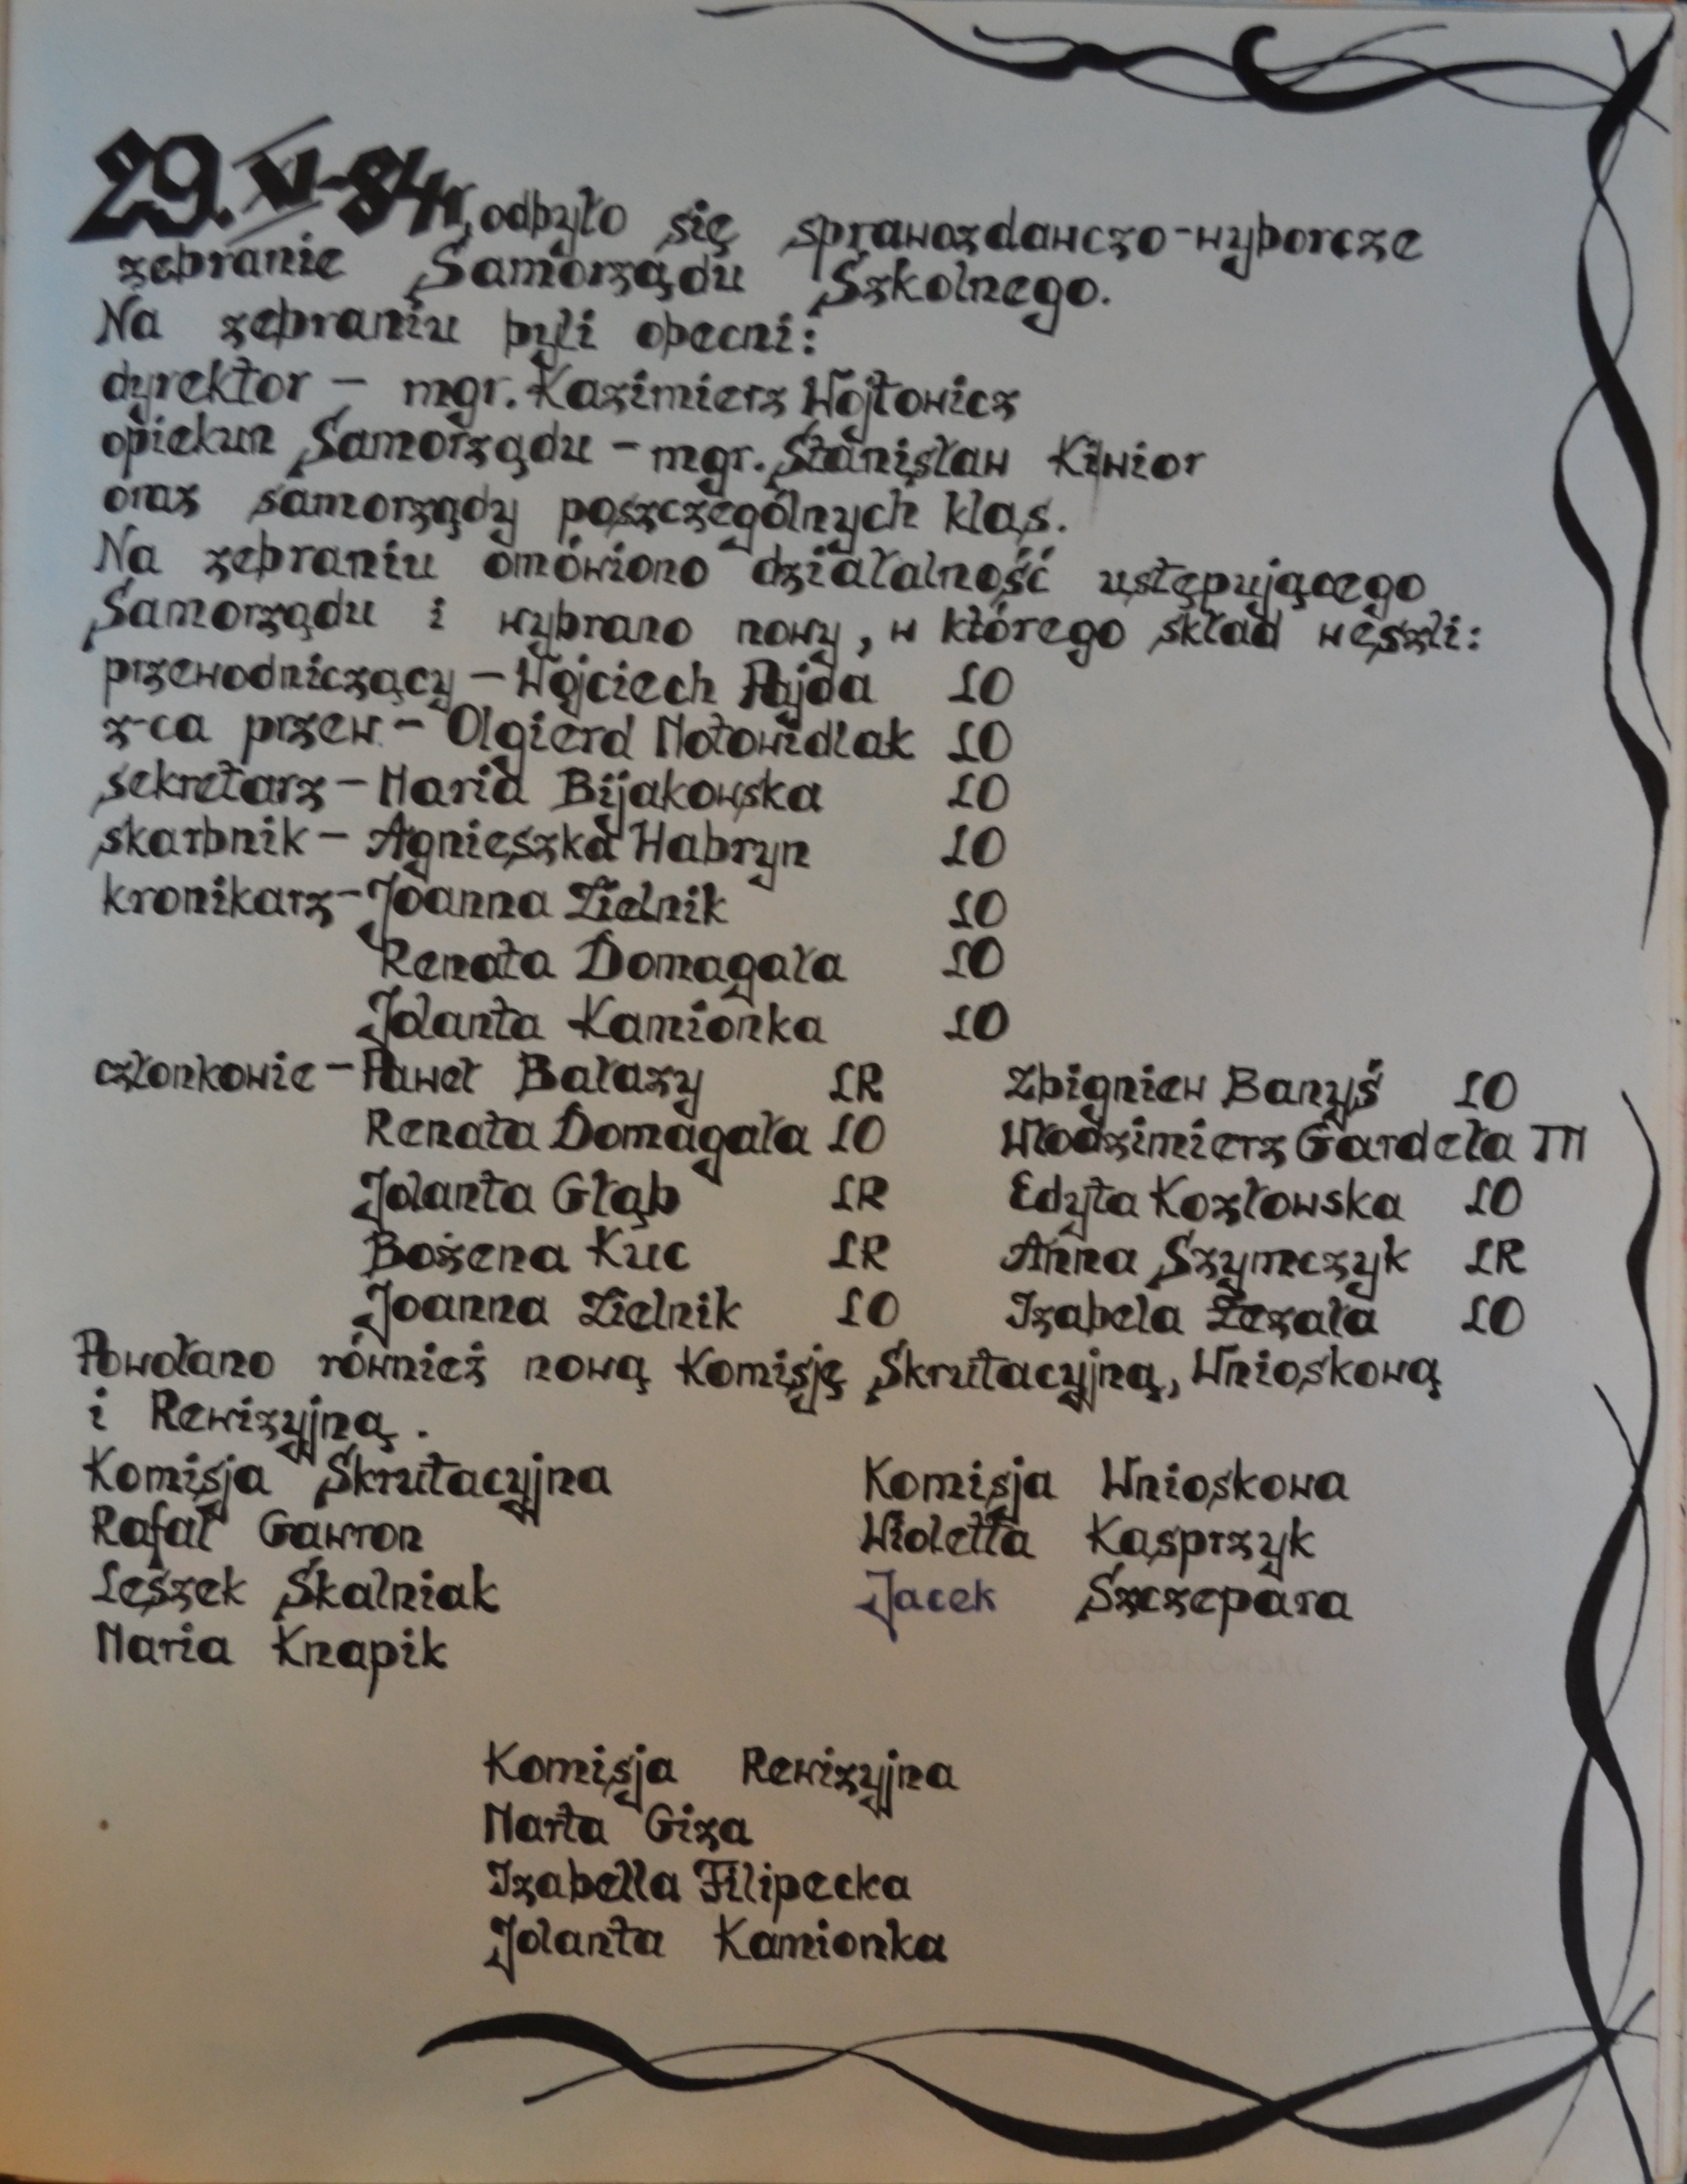 29.XI-84r, odbyło się sprawozdawczo-wyborcze
zebranie Samorządu Szkolnego.
Na zebraniu byli obecni:
dyrektor – mgr. Kazimierz Wójtowicz
opiekun Samorządu – mgr. Stanisław Kiwior
oraz samorządy poszczególnych klas.
Na zebraniu omówiono działalność ustępującego
Samorządu i wybrano nowy, w którego skład weszli:
przewodniczący – Wojciech Pajda LO
z-ca przew. – Olgierd Motowidlak LO
sekretarz – Maria Bijakowska LO
skarbnik – Agnieszka Habryn LO
kronikarz – Joanna Zielnik LO
Renata Domagała LO
Jolanta Kamionka LO
członkowie – Paweł Bałazy LR Zbigniew Banyś LO
Renata Domagała LO Włodzimierz Gardeła TM
Jolanta Głąb LR Edyta Kozłowska LO
Bożena Kuc LR Anna Szymczyk LR
Joanna Zielnik LO Izabela Zezała LO
Powołano również nową Komisję Skrutacyjną, Wnioskową
i Rewizyjną.
Komisja Skrutacyjna Komisja Wnioskowa
Rafał Gawron Wioletta Kasprzyk
Leszek Skalniak Jacek Szczepara
Maria Knapik
Komisja Rewizyjna
Marta Giza
Izabella Filipecka
Jolanta Kamionka